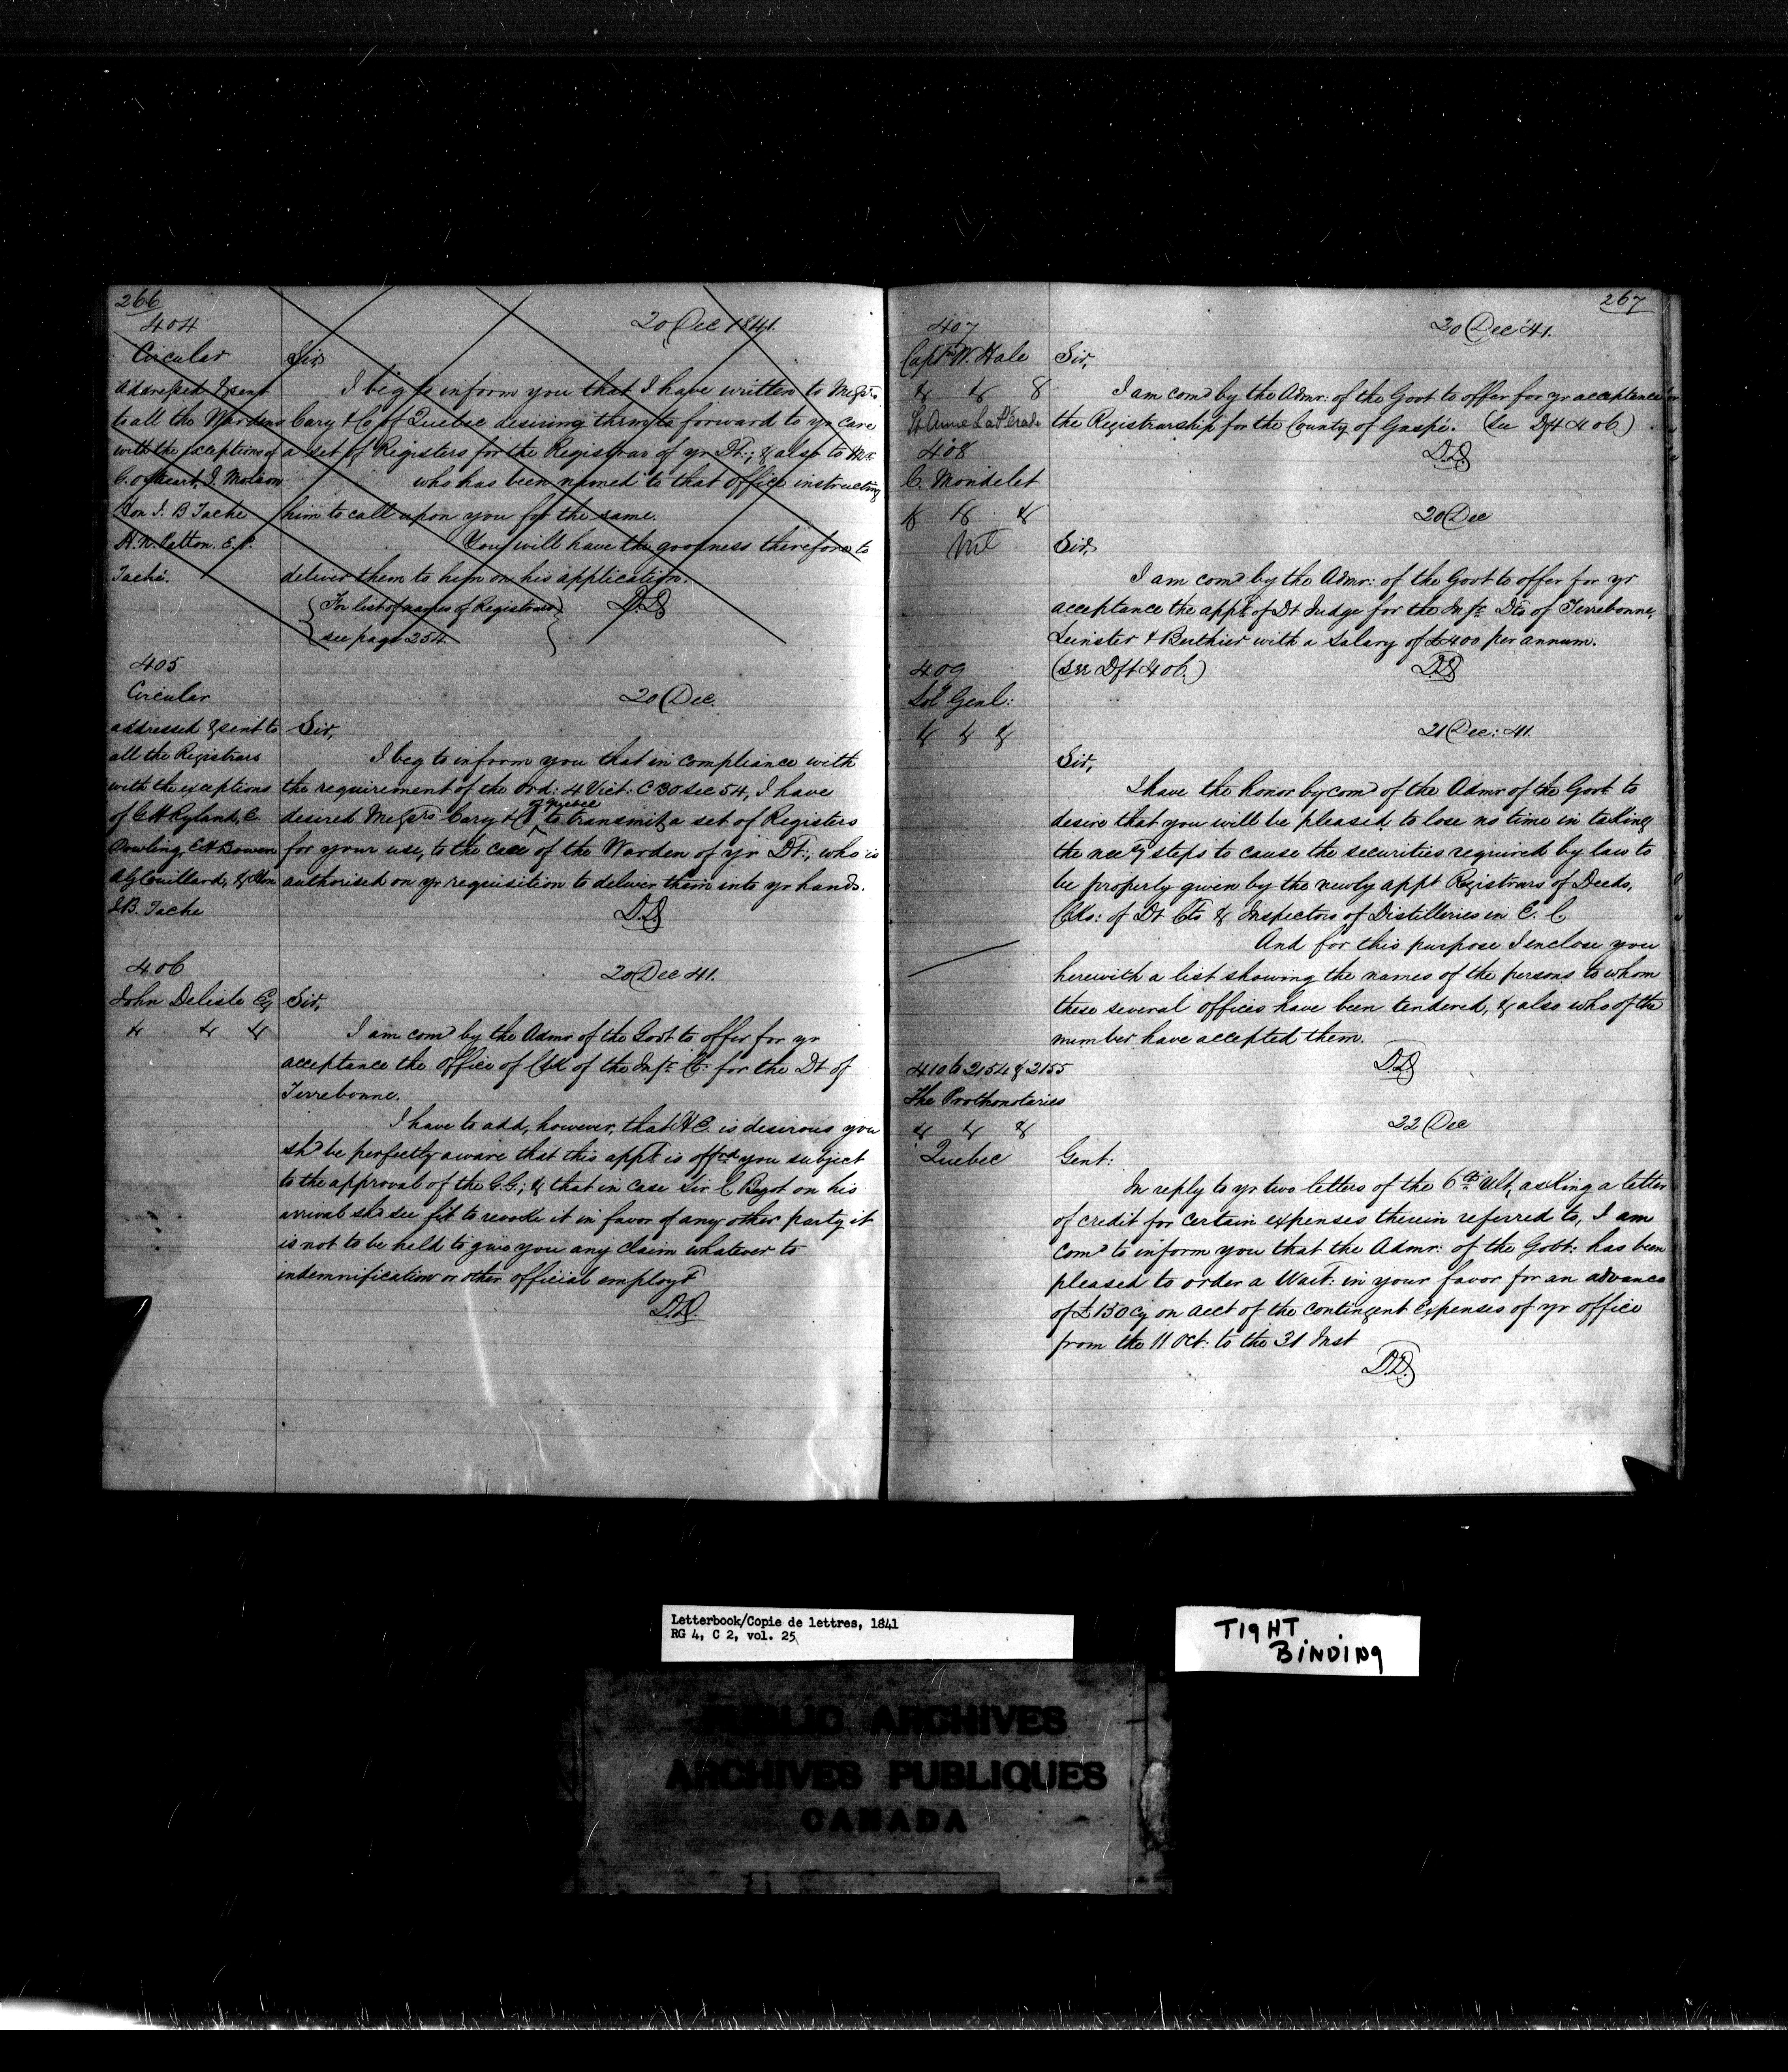 266
404
20 Dec 1841.
Circular
addressed & sent
to all the Wardens
with the exceptions of
C. Ogheart, J. Molson
Hon J. B Tache
H. N. Patton. E. P.
Taché.
Sir,
I beg to inform you that I have written to Messrs
Cary & Co of Quebec desiring them to forward to yr care
a set of Registers for the Registrar of yr Dt:, & also to Mr
who has been named to that office instructing
him to call upon you for the same.
You will have the goodness therefore to
deliver them to him on his application.
(For list of names of Registrars)
see page 254.
D.D
405
Circular
addressed & sent to
all the Registrars
with the exceptions
of G H Ryland, E.
Dowling, E H Bowen
A G Couillard, & Hon
J.B. Tache
20 Dec.
Sir,
I beg to inform you that in compliance with
the requirement of the Ord: 4 Vict: C 30 Sec 54, I have
desired Messrs Cary & Co of Quebec to transmit a set of Registers
for your use, to the care of the Warden of yr Dt:, who is
authorised on yr requisition to deliver them into yr hands.
D.D
406
John Delisle Esq
& & &
20 Dec 41.
Sir,
I am comd by the Admr of the Govt to offer for yr
acceptance the office of Clk of the Infr Ct: for the Dt of
Terrebonne.
I have to add, however, that H.E. is desirous you
shd be perfectly aware that this appt is offred you subject
to the approval of the G.G.; & that in case Sir C Bagot on his
arrival shd see fit to revoke it in favor of any other party it
is not to be held to give you any claim whatever to
indemnification or other official employt
D.D.
267
407
Captn W. Hale
& & &
St Anne La Perade
20 Dec 41.
Sir,
I am comd by the Admr: of the Govt to offer for yr acceptance
the Registrarship for the County of Gaspé. (see Dft 406)
D.D
408
C. Mondelet
& & &
Mtl
20 Dec
Sir,
I am comd by the Admr: of the Govt to offer for yr
acceptance the appt of Dt Judge for the Infr Dts of Terrebonne,
Leinster & Berthier with a Salary of £400 per annum.
(see Dft 406.)
D.D
409
Solr Genl:
& & &
21 Dec: 41.
Sir,
I have the honor by comd of the Admr of the Govt to
desire that you will be pleased to lose no time in taking
the necy steps to cause the securities required by law to
be properly given by the newly appt Registrars of Deeds,
Clks: of Dt Cts & Inspectors of Distilleries in E. C.
And for this purpose I enclose you
herewith a list showing the names of the persons to whom
these several offices have been tendered, & also who of the
number have accepted them.
D.D
410 to 2154 & 2155
The Prothonotaries
& & &
Quebec
22 Dec
Gent:
In reply to yr two letters of the 6th Ult, asking a letter
of credit for certain expenses therein referred to, I am
comd to inform you that the Admr: of the Govt: has been
pleased to order a Wart: in your favor for an advance
of £150 Cy on acct of the contingent Expenses of yr office
from the 11 Oct: to the 31 Inst
D.D.
Letterbook/Copie de lettres, 1841
RG 4, C 2, vol. 25
TIGHT
BINDING
PUBLIC ARCHIVES
ARCHIVES PUBLIQUES
CANADA